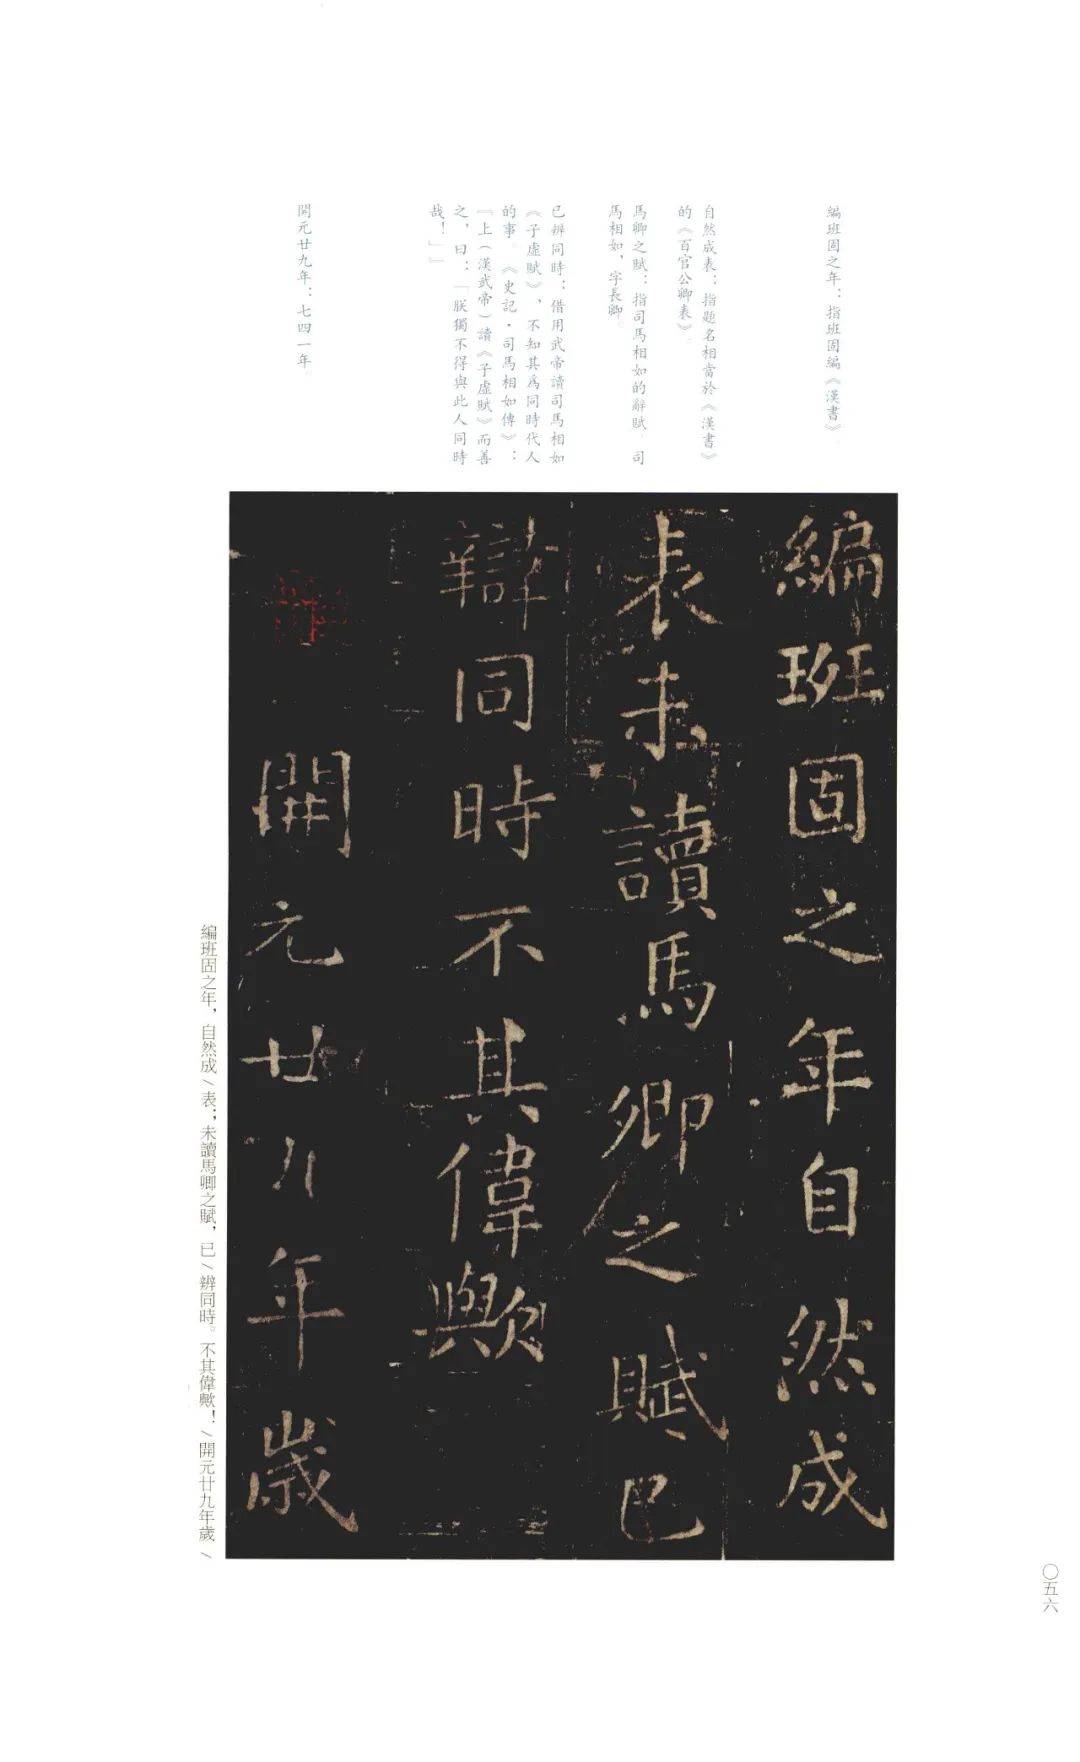 編班固之年：指班固編《漢書》。
自然成表：指題名相當於《漢書》
的《百官公卿表》。
馬卿之賦：指司馬相如的辭賦。司
馬相如，字長卿。
已辨同時：借用武帝讀司馬相如
《子虛賦》，不知其爲同時代人
的事。《史記·司馬相如傳》：
『上（漢武帝）讀《子虛賦》而善
之，曰：「朕獨不得與此人同時
哉！」』
開元廿九年：七四一年。
編班固之年自然成
表未讀馬卿之賦已
辯同時不其偉歟
開元廿九年歲
編班固之年，自然成/表；未讀馬卿之賦，已/辨同時。不其偉歟！/開元廿九年歲/
〇五六